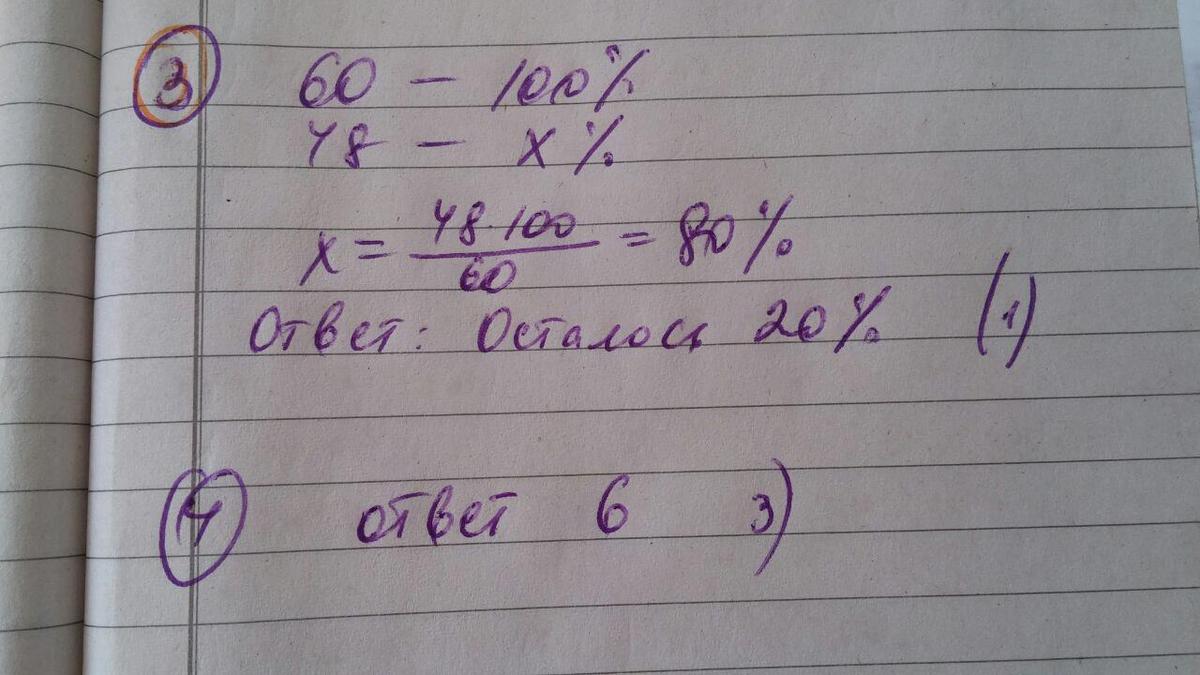 3 60 - 100%
48 - x%
x = 48·100/60 = 80%
Ответ: Осталось 20% (1)
4 ответ 6 3)